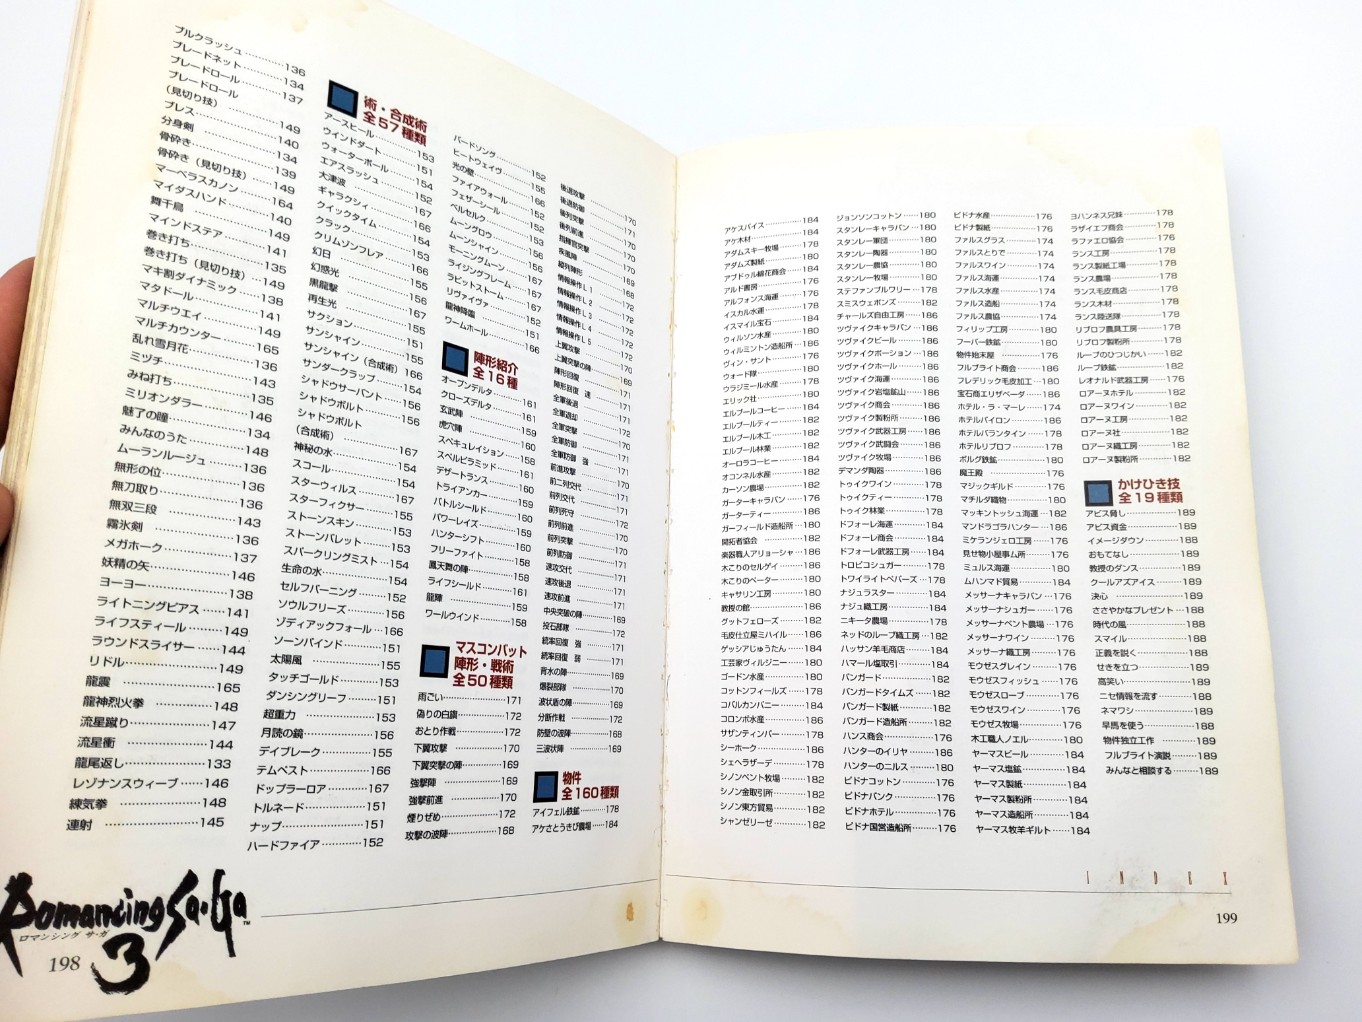 ブルクラッシュ…………136
ブレードネット…………134
ブレードロール…………137
ブレードロール
（見切り技）…………149
プレス…………140
分身剣…………134
骨砕き…………139
骨砕き（見切り技）……149
マーベラスカノン……164
マイダスハンド…………140
舞千鳥…………149
マインドステア…………141
巻き打ち…………135
巻き打ち（見切り技）…149
マキ割ダイナミック……138
マタドール…………141
マルチウエイ…………149
マルチカウンター………165
乱れ雪月花…………136
ミヅチ…………143
みね打ち…………135
ミリオンダラー…………146
魅了の瞳…………134
みんなのうた…………148
ムーランルージュ………136
無形の位…………136
無刀取り…………136
無双三段…………143
霧氷剣…………136
メガホーク…………137
妖精の矢…………146
ヨーヨー…………138
ライトニングピアス……141
ライフスティール………149
ラウンドスライサー……144
リドル…………149
龍震…………165
龍神烈火拳…………148
流星蹴り…………147
流星衝…………144
龍尾返し…………133
レゾナンスウィーブ……146
練気拳…………148
連射…………145
術・合成術
全57種類
アースヒール…………153
ウインドダート…………151
ウォーターポール………154
エアスラッシュ…………152
大津波…………167
ギャラクシィ…………166
クイックタイム…………154
クラック…………153
クリムゾンフレア………166
幻日…………155
幻惑光…………156
黒龍撃…………167
再生光…………155
サクション…………151
サンシャイン…………155
サンシャイン（合成術）166
サンダークラップ………154
シャドウサーバント……156
シャドウボルト…………156
シャドウボルト
（合成術）…………167
神秘の水…………154
スコール…………154
スターウィルス…………167
スターフィクサー………155
ストーンスキン…………153
ストーンバレット………153
スパークリングミスト…154
生命の水…………154
セルフバーニング………152
ソウルフリーズ…………156
ゾディアックフォール…166
ソーンバインド…………151
太陽風…………155
タッチゴールド…………153
ダンシングリーフ………151
超重力…………153
月読の鏡…………156
デイブレーク…………155
テムペスト…………166
ドップラーロア…………167
トルネード…………151
ナップ…………151
ハードファイア…………152
バードソング…………152
ヒートウェイヴ…………155
光の壁…………166
ファイアウォール………152
フェザーシール…………156
ベルセルク…………152
ムーングロウ…………153
ムーンシャイン…………156
モーニングムーン………156
ライジングフレーム……167
ラピットストーム………167
リヴァイヴァ…………152
龍神降臨…………151
ワームホール…………166
陣形紹介
全16種
オープンデルタ…………161
クローズデルタ…………161
玄武陣…………159
虎穴陣…………159
スペキュレイション……158
スペルピラミッド………161
デザートランス…………160
トライアンカー…………159
バトルシールド…………160
パワーレイズ…………159
ハンターシフト…………160
フリーファイト…………158
鳳天舞の陣…………158
ライフシールド…………161
龍陣…………159
ワールウインド…………158
マスコンバット
陣形・戦術
全50種類
雨ごい…………171
偽りの白旗…………172
おとり作戦…………172
下翼攻撃…………170
下翼突撃の陣…………169
強撃陣…………169
強撃前進…………170
煙りぜめ…………172
攻撃の波陣…………168
後退攻撃…………170
後退防御…………171
後列突撃…………170
後列前進…………171
指揮官突撃…………170
疾風陣…………170
縦列陣形…………169
情報操作L1…………168
情報操作L2…………172
情報操作L3…………172
情報操作L4…………172
情報操作L5…………172
上翼攻撃…………170
上翼突撃の陣…………169
陣形回復
陣形回復 速…………171
全軍後退…………171
全軍退却…………171
全軍突撃…………172
全軍防御…………170
全軍防御 強…………171
前進攻撃…………170
前二列交代…………171
前列交代…………171
前列死守…………172
前列前進…………171
前列突撃…………170
前列防御…………171
速攻交代…………171
速攻後退…………171
速攻前進…………171
中央突破の陣…………169
投石部隊…………172
統率回復 強…………171
統率回復 弱…………171
背水の陣…………169
爆裂部隊…………170
波状盾の陣…………169
分断作戦…………172
防壁の波陣…………168
三波状陣…………169
物件
全160種類
アイフェル鉄鉱…………178
アケさとうきび農場……184
Romancing Sa・Ga™
ロマンシング サ・ガ
3
198
アケスパイス…………184
アケ木材…………184
アダムスキー牧場………178
アダムズ製紙…………180
アブドゥル綿花商会……184
アルド書房…………176
アルフォンス海運………178
イスカル水運…………178
イスマイル宝石…………184
ウィルソン水産…………180
ウィルミントン造船所…186
ヴィン・サント…………176
ウォード隊…………180
ウラジミール水産………178
エリック社…………180
エルブールコーヒー……184
エルブールティー………182
エルブール木工…………182
エルブール林業…………182
オーロラコーヒー………184
オコンネル水産…………182
カーソン農場…………182
ガーターキャラバン……176
ガーターティー…………186
ガーフィールド造船所…180
開拓者協会…………182
楽器職人アリョーシャ…186
木こりのセルゲイ………186
木こりのペーター………180
キャサリン工房…………180
教授の館…………186
グットフェローズ………182
毛皮仕立屋ミハイル……186
ゲッシアじゅうたん……184
工芸家ヴィルジニー……180
ゴードン水産…………180
コットンフィールズ……178
コバルカンパニー………184
コロンボ水産…………186
サザンティンバー………178
シーホーク…………186
シェヘラザード…………178
シノンベント牧場………182
シノン金取引所…………182
シノン東方貿易…………182
シャンゼリーゼ…………182
ジョンソンコットン……180
スタンレーキャラバン…180
スタンレー軍団…………180
スタンレー陶器…………180
スタンレー農協…………180
スタンレー牧場…………180
ステファンブルワリー…178
スミスウェポンズ………182
チャールズ自由工房……186
ツヴァイクキャラバン…186
ツヴァイクビール………186
ツヴァイクポーション…186
ツヴァイクホール………186
ツヴァイク海運…………186
ツヴァイク岩塩鉱山……186
ツヴァイク商会…………186
ツヴァイク製粉所………186
ツヴァイク武器工房……186
ツヴァイク武闘会………186
ツヴァイク牧場…………186
デマンダ陶器…………186
トゥイクワイン…………178
トゥイクティー…………178
トゥイク林業…………178
ドフォーレ海運…………184
ドフォーレ商会…………184
ドフォーレ武器工房……184
トロピコシュガー………178
トワイライトペパーズ…178
ナジュラスター…………184
ナジュ織工房…………184
ニキータ農場…………178
ネッドのループ織工房…182
ハッサン羊毛商店………184
ハマール塩取引…………184
バンガード…………182
バンガードタイムズ……182
バンガード製紙…………182
バンガード造船所………182
ハンス商会…………176
ハンターのイリヤ………186
ハンターのニルス………180
ピドナコットン…………176
ピドナバンク…………176
ピドナホテル…………176
ピドナ国営造船所………176
ピドナ水産…………176
ピドナ製紙…………178
ファルスグラス…………174
ファルスとりで…………174
ファルスワイン…………174
ファルス海運…………174
ファルス水産…………174
ファルス造船…………174
ファルス農協…………174
フィリップ工房…………180
フーバー鉄鉱…………180
物件始末屋…………176
フルブライト商会………186
フレデリック毛皮加工…180
宝石商エリザベータ……186
ホテル・ラ・マーレ……174
ホテルバイロン…………186
ホテルバランタイン……178
ホテルリブロフ…………178
ボルグ鉄鉱…………180
魔王殿…………176
マジックギルド…………176
マチルダ織物…………180
マッキントッシュ海運…182
マンドラゴラハンター…186
ミケランジェロ工房……176
見せ物小屋事ム所………176
ミュルス海運…………180
ムハンマド貿易…………184
メッサーナキャラバン…176
メッサーナシュガー……176
メッサーナベント農場…176
メッサーナワイン………176
メッサーナ織工房………176
モウゼスグレイン………176
モウゼスフィッシュ……176
モウゼスロープ…………176
モウゼスワイン…………176
モウゼス牧場…………176
木工職人ノエル…………180
ヤーマスビール…………184
ヤーマス塩鉱…………184
ヤーマス製紙…………184
ヤーマス製粉所…………184
ヤーマス造船所…………184
ヤーマス牧羊ギルト……184
ヨハンネス兄妹…………178
ラザイエフ商会…………178
ラファエロ協会…………176
ランス工房…………178
ランス製紙工場…………178
ランス農場…………178
ランス毛皮商店…………178
ランス木材…………178
ランス陸送隊…………178
リブロフ農具工房………178
リブロフ製粉所…………178
ループのひつじかい……182
ループ鉄鉱…………182
レオナルド武器工房……176
ロアーヌホテル…………182
ロアーヌワイン…………182
ロアーヌ工房…………182
ロアーヌ社…………182
ロアーヌ織工房…………182
ロアーヌ製粉所…………182
かけひき技
全19種類
アビス脅し…………189
アビス資金…………189
イメージダウン…………188
おもてなし…………189
教授のダンス…………189
クールアズアイス………189
決心…………189
ささやかなプレゼント…188
時代の風…………188
スマイル…………188
正義を説く…………188
せきを立つ…………189
高笑い…………189
ニセ情報を流す…………188
ネマワシ…………189
早馬を使う…………188
物件独立工作…………189
フルブライト演説………188
みんなと相談する………189
INDEX
199